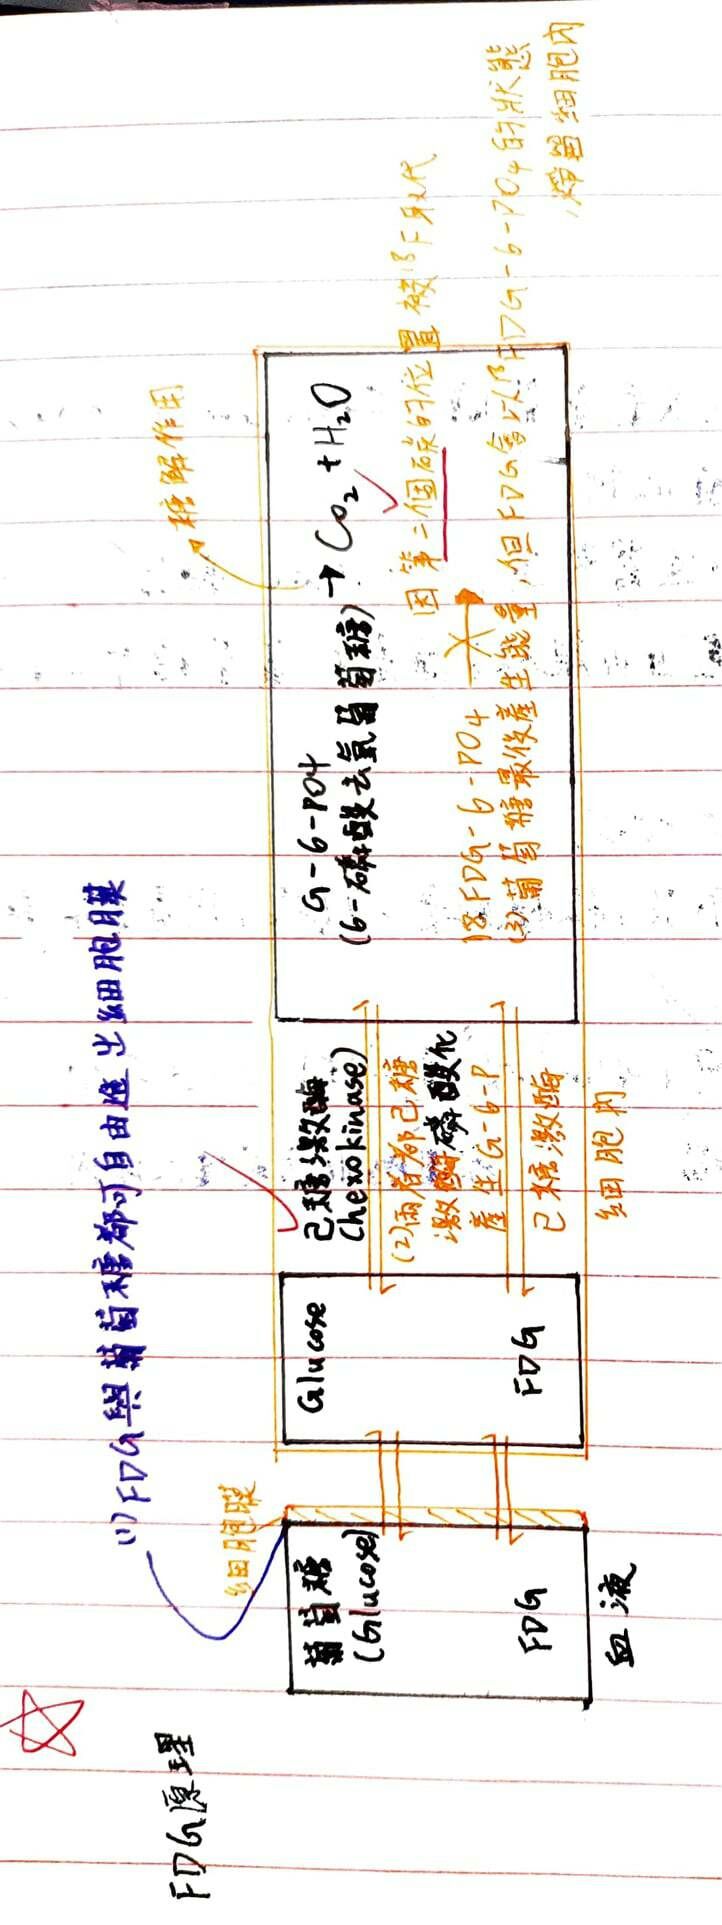 FDG原理
(1) FDG與葡萄糖都可自由進出細胞膜
細胞膜
葡萄糖
(Glucose)
FDG
血液
Glucose
FDG
己糖激酶
(hexokinase)
(2)兩者都己糖
激酶磷酸化
產生G-6-P
己糖激酶
細胞內
糖解作用
G-6-PO4
(6-磷酸去氧葡萄糖)
→ CO2 + H2O
因第二個碳的位置被18F取代
18FDG-6-PO4
(3)葡萄糖最後產生能量,但FDG會以18FDG-6-PO4的狀態
滯留細胞內